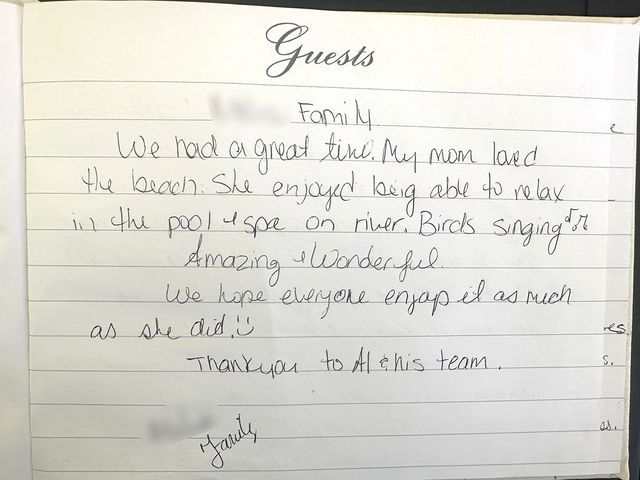 Guests
Family
We had a great time. My mom loved
the beach. She enjoyed being able to relax
in the pool & spa on river. Birds singing ♫♫
Amazing & Wonderful.
We hope everyone enjoys it as much
as she did. :)
Thank you to Al & his team.
Family
e
res
s.
as.